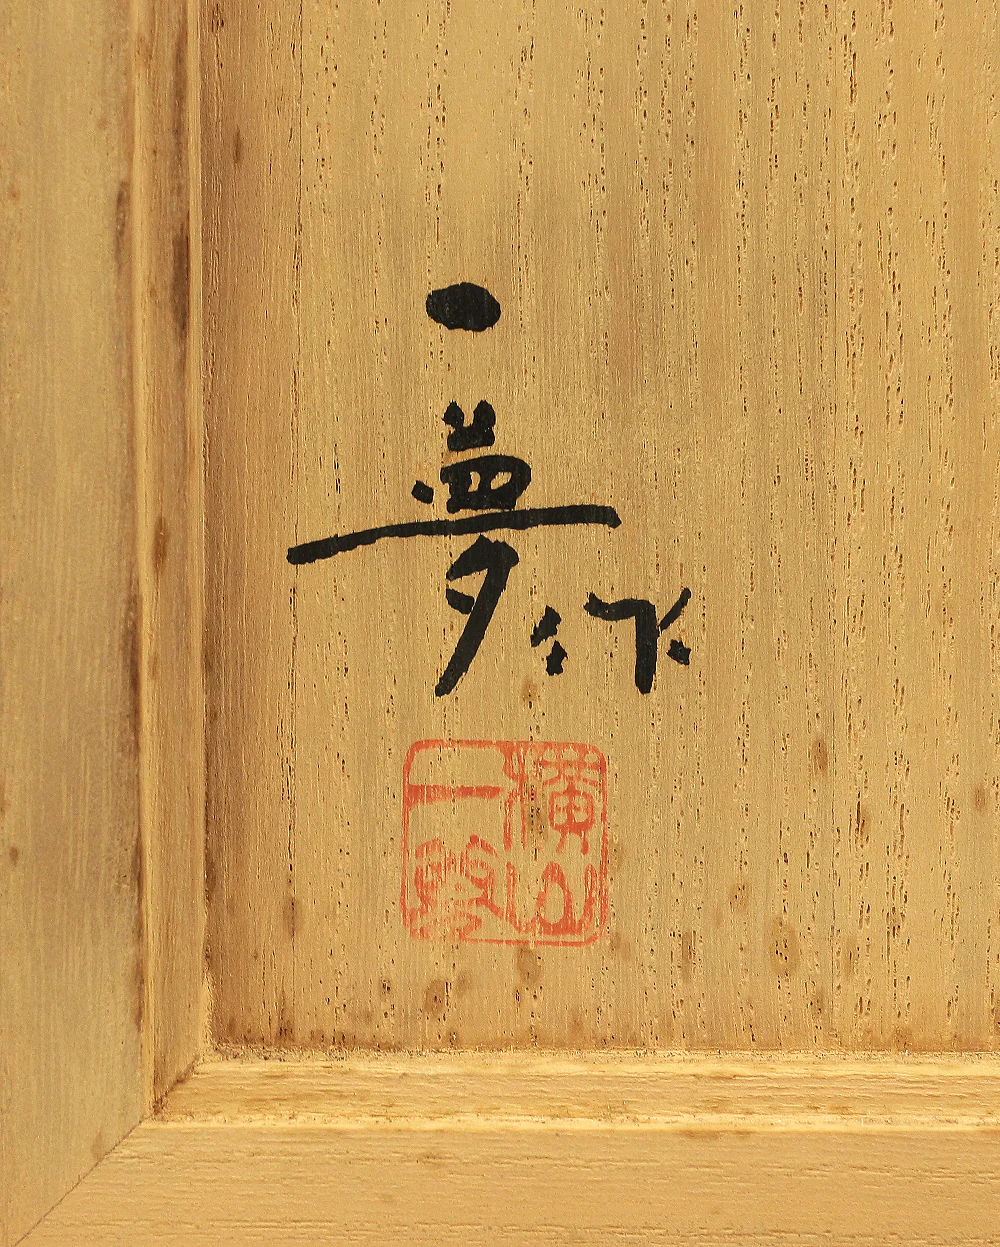 一夢作
横山
一夢